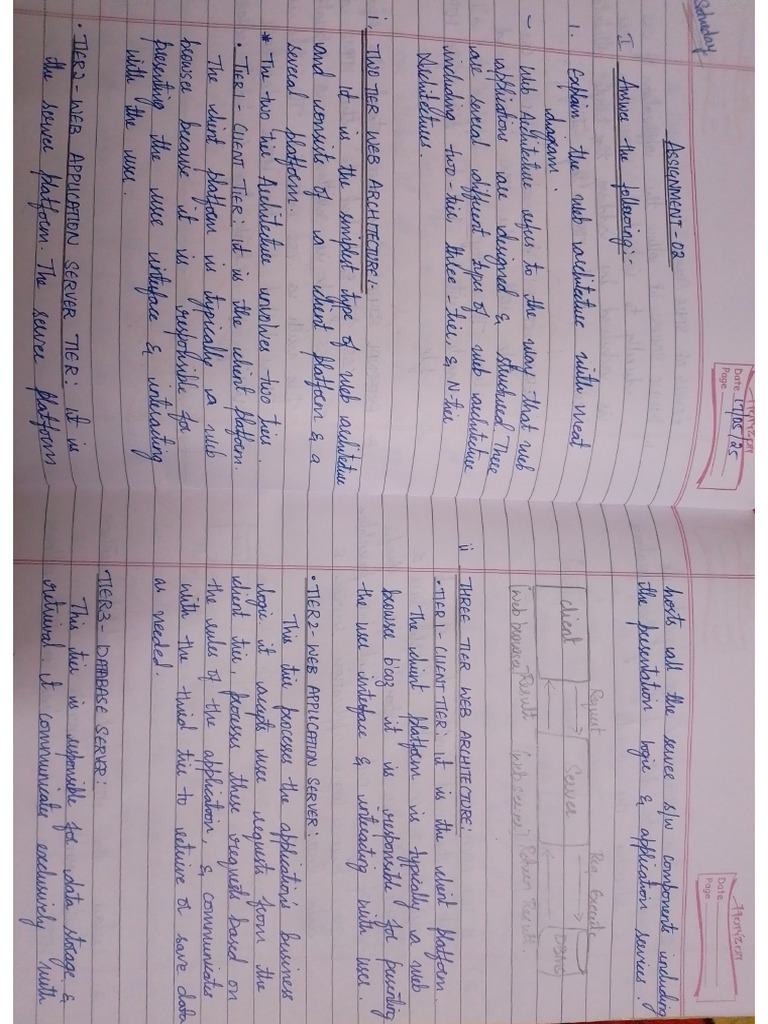 Saturday
Horizon
Date 17/05/25
Page
ASSIGNMENT - 02
I Answer the following:-
1. Explain the web architecture with neat
diagram.
- Web Architecture refers to the way that web
applications are designed & structured. There
are several different types of web architecture
including two-tier, three-tier, & N-tier
Architectures.
i. TWO TIER WEB ARCHITECTURE:-
It is the simplest type of web architecture
and consists of a client platform & a
several platform.
* The two tier Architecture involves two tiers
• TIER 1 - CLIENT TIER: it is the client platform.
The client platform is typically a web
browser because it is responsible for
presenting the user interface & interacting
with the user.
• TIER 2 - WEB APPLICATION SERVER TIER: it is
the server platform. The server platform
Horizon
Date
Page
hosts all the server s/w components including
the presentation logic & application services.
Request
Req Execute
client
Server
DBMS
Result
Return Result.
(web browser)
(web server)
ii THREE TIER WEB ARCHITECTURE:
• TIER 1 - CLIENT TIER: it is the client platform.
The client platform is typically a web
browser b'coz it is responsible for presenting
the user interface & interacting with user.
• TIER 2 - WEB APPLICATION SERVER:
This tier processes the application's business
logic it accepts user requests from the
client tier, processes these requests based on
the rules of the application, & communicates
with the third tier to retrieve or save data
as needed.
• TIER 3 - DATABASE SERVER:
This tier is responsible for data storage &
retrieval it communicates exclusively with